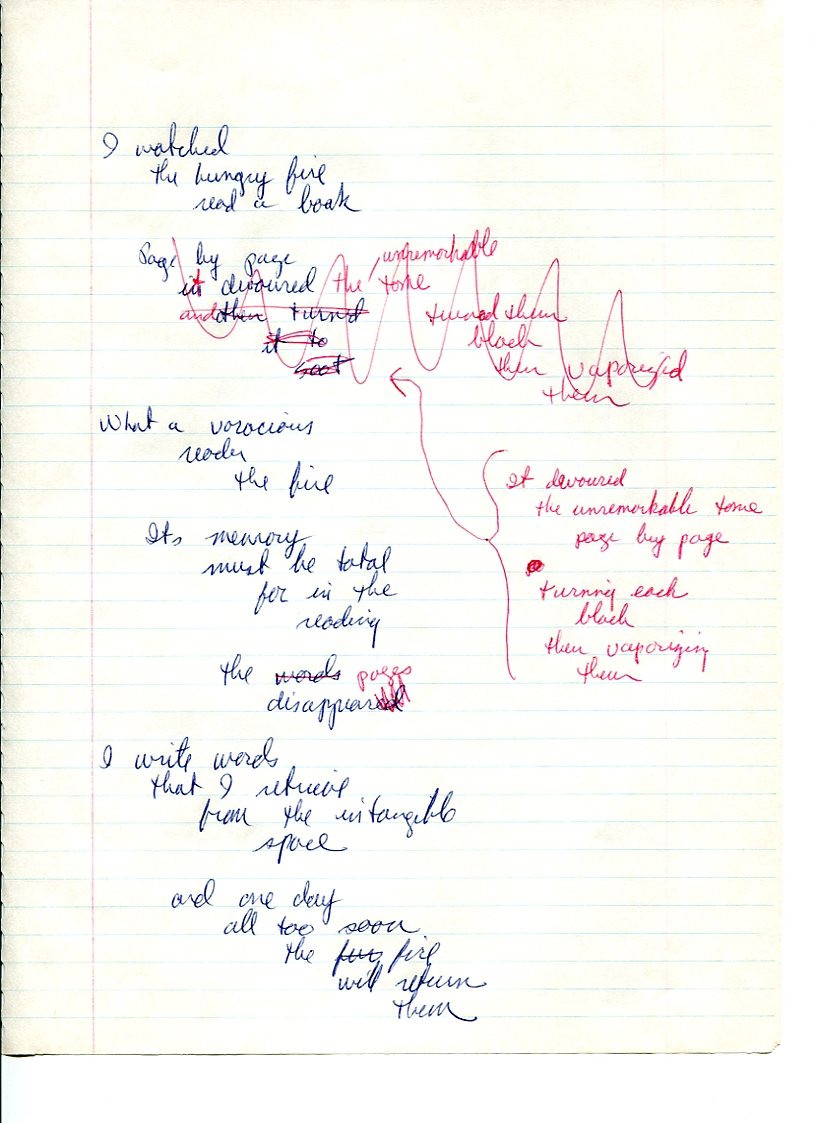 I watched
the hungry fire
read a book
Page by page
it devoured the unremarkable tome
and then turned
it to
soot
turned them
black
then vaporized
them
What a voracious
reader
the fire
It devoured
the unremarkable tome
page by page
turning each
black
then vaporizing
them
Its memory
must be total
for in the
reading
the words pages
disappeared
I write words
that I retrieve
from the intangible
space
and one day
all too soon
the fire
will return
them